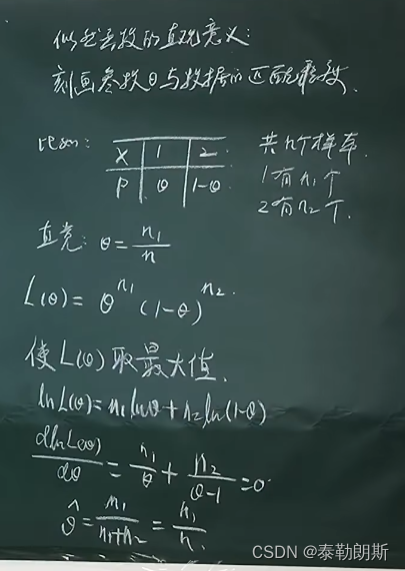 似然函数的直观意义:
刻画参数θ与数据的匹配程度.
比如:
X 1 2
P θ 1-θ
共n个样本.
1有n₁个
2有n₂个.
直觉: θ = n₁/n
L(θ) = θ^n₁ (1-θ)^n₂.
使L(θ)取最大值.
lnL(θ) = n₁lnθ + n₂ln(1-θ)
dlnL(θ)/dθ = n₁/θ + n₂/(θ-1) = 0.
θ̂ = n₁/(n₁+n₂) = n₁/n.
CSDN @泰勒朗斯